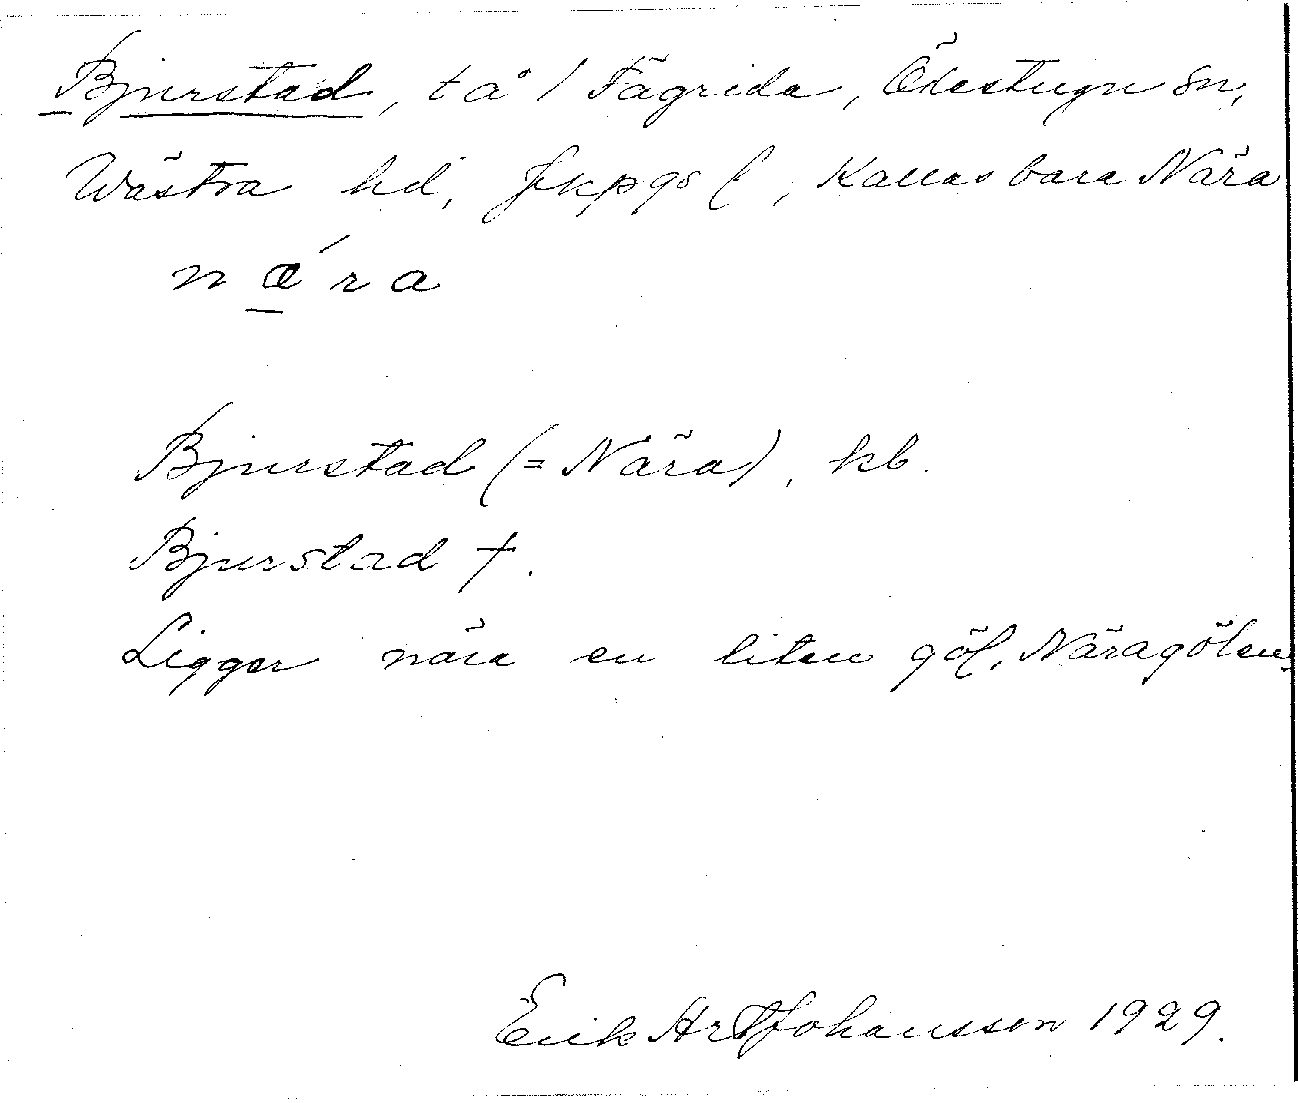 Bjurstad, t å / Fägrida, Ödestugu sn,
Wästra hd, Jkpgs l, Kallas bara Nära
næ´ra
Bjurstad (= Nära), kb.
Bjurstad †.
Ligger nära en liten göl, Näragölen.
Erik Johansson 1929.